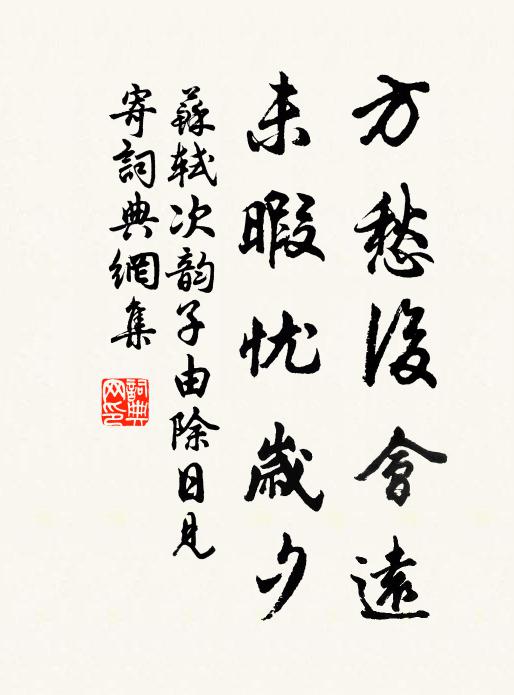 方愁後會遠
未暇忧歲夕
蘇軾次韵子由除日見
寄詞典網集
詞典
网印